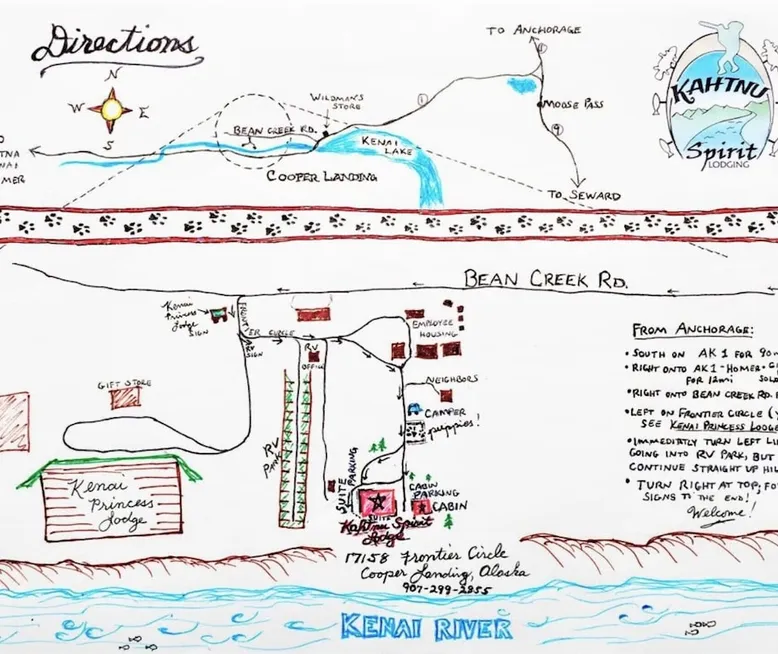 Directions
N
W
E
S
TO ANCHORAGE
WILDMAN'S
STORE
1
MOOSE PASS
9
BEAN CREEK RD.
KENAI
LAKE
COOPER LANDING
TO SEWARD
KAHTNU
Spirit
LODGING
BEAN CREEK RD.
Kenai
Princess
Lodge
SIGN
FRONTIER CIRCLE
EMPLOYEE
HOUSING
RV
OFFICE
NEIGHBORS
GIFT STORE
CAMPER
puppies!
RV
PARK
SUITE
PARKING
CABIN
PARKING
CABIN
SUITE
Kenai
Princess
Lodge
Kahtnu Spirit
Lodge
17158 Frontier Circle
Cooper Landing, Alaska
907-299-2855
FROM ANCHORAGE:
• SOUTH ON AK 1 FOR 90
• RIGHT ONTO AK1-HOMER
FOR 12mi
• RIGHT ONTO BEAN CREEK RD.
• LEFT ON FRONTIER CIRCLE
SEE KENAI PRINCESS LODGE
• IMMEDIATLY TURN LEFT
GOING INTO RV PARK, BUT
CONTINUE STRAIGHT UP
• TURN RIGHT AT TOP,
SIGNS TO THE END!
Welcome!
KENAI RIVER